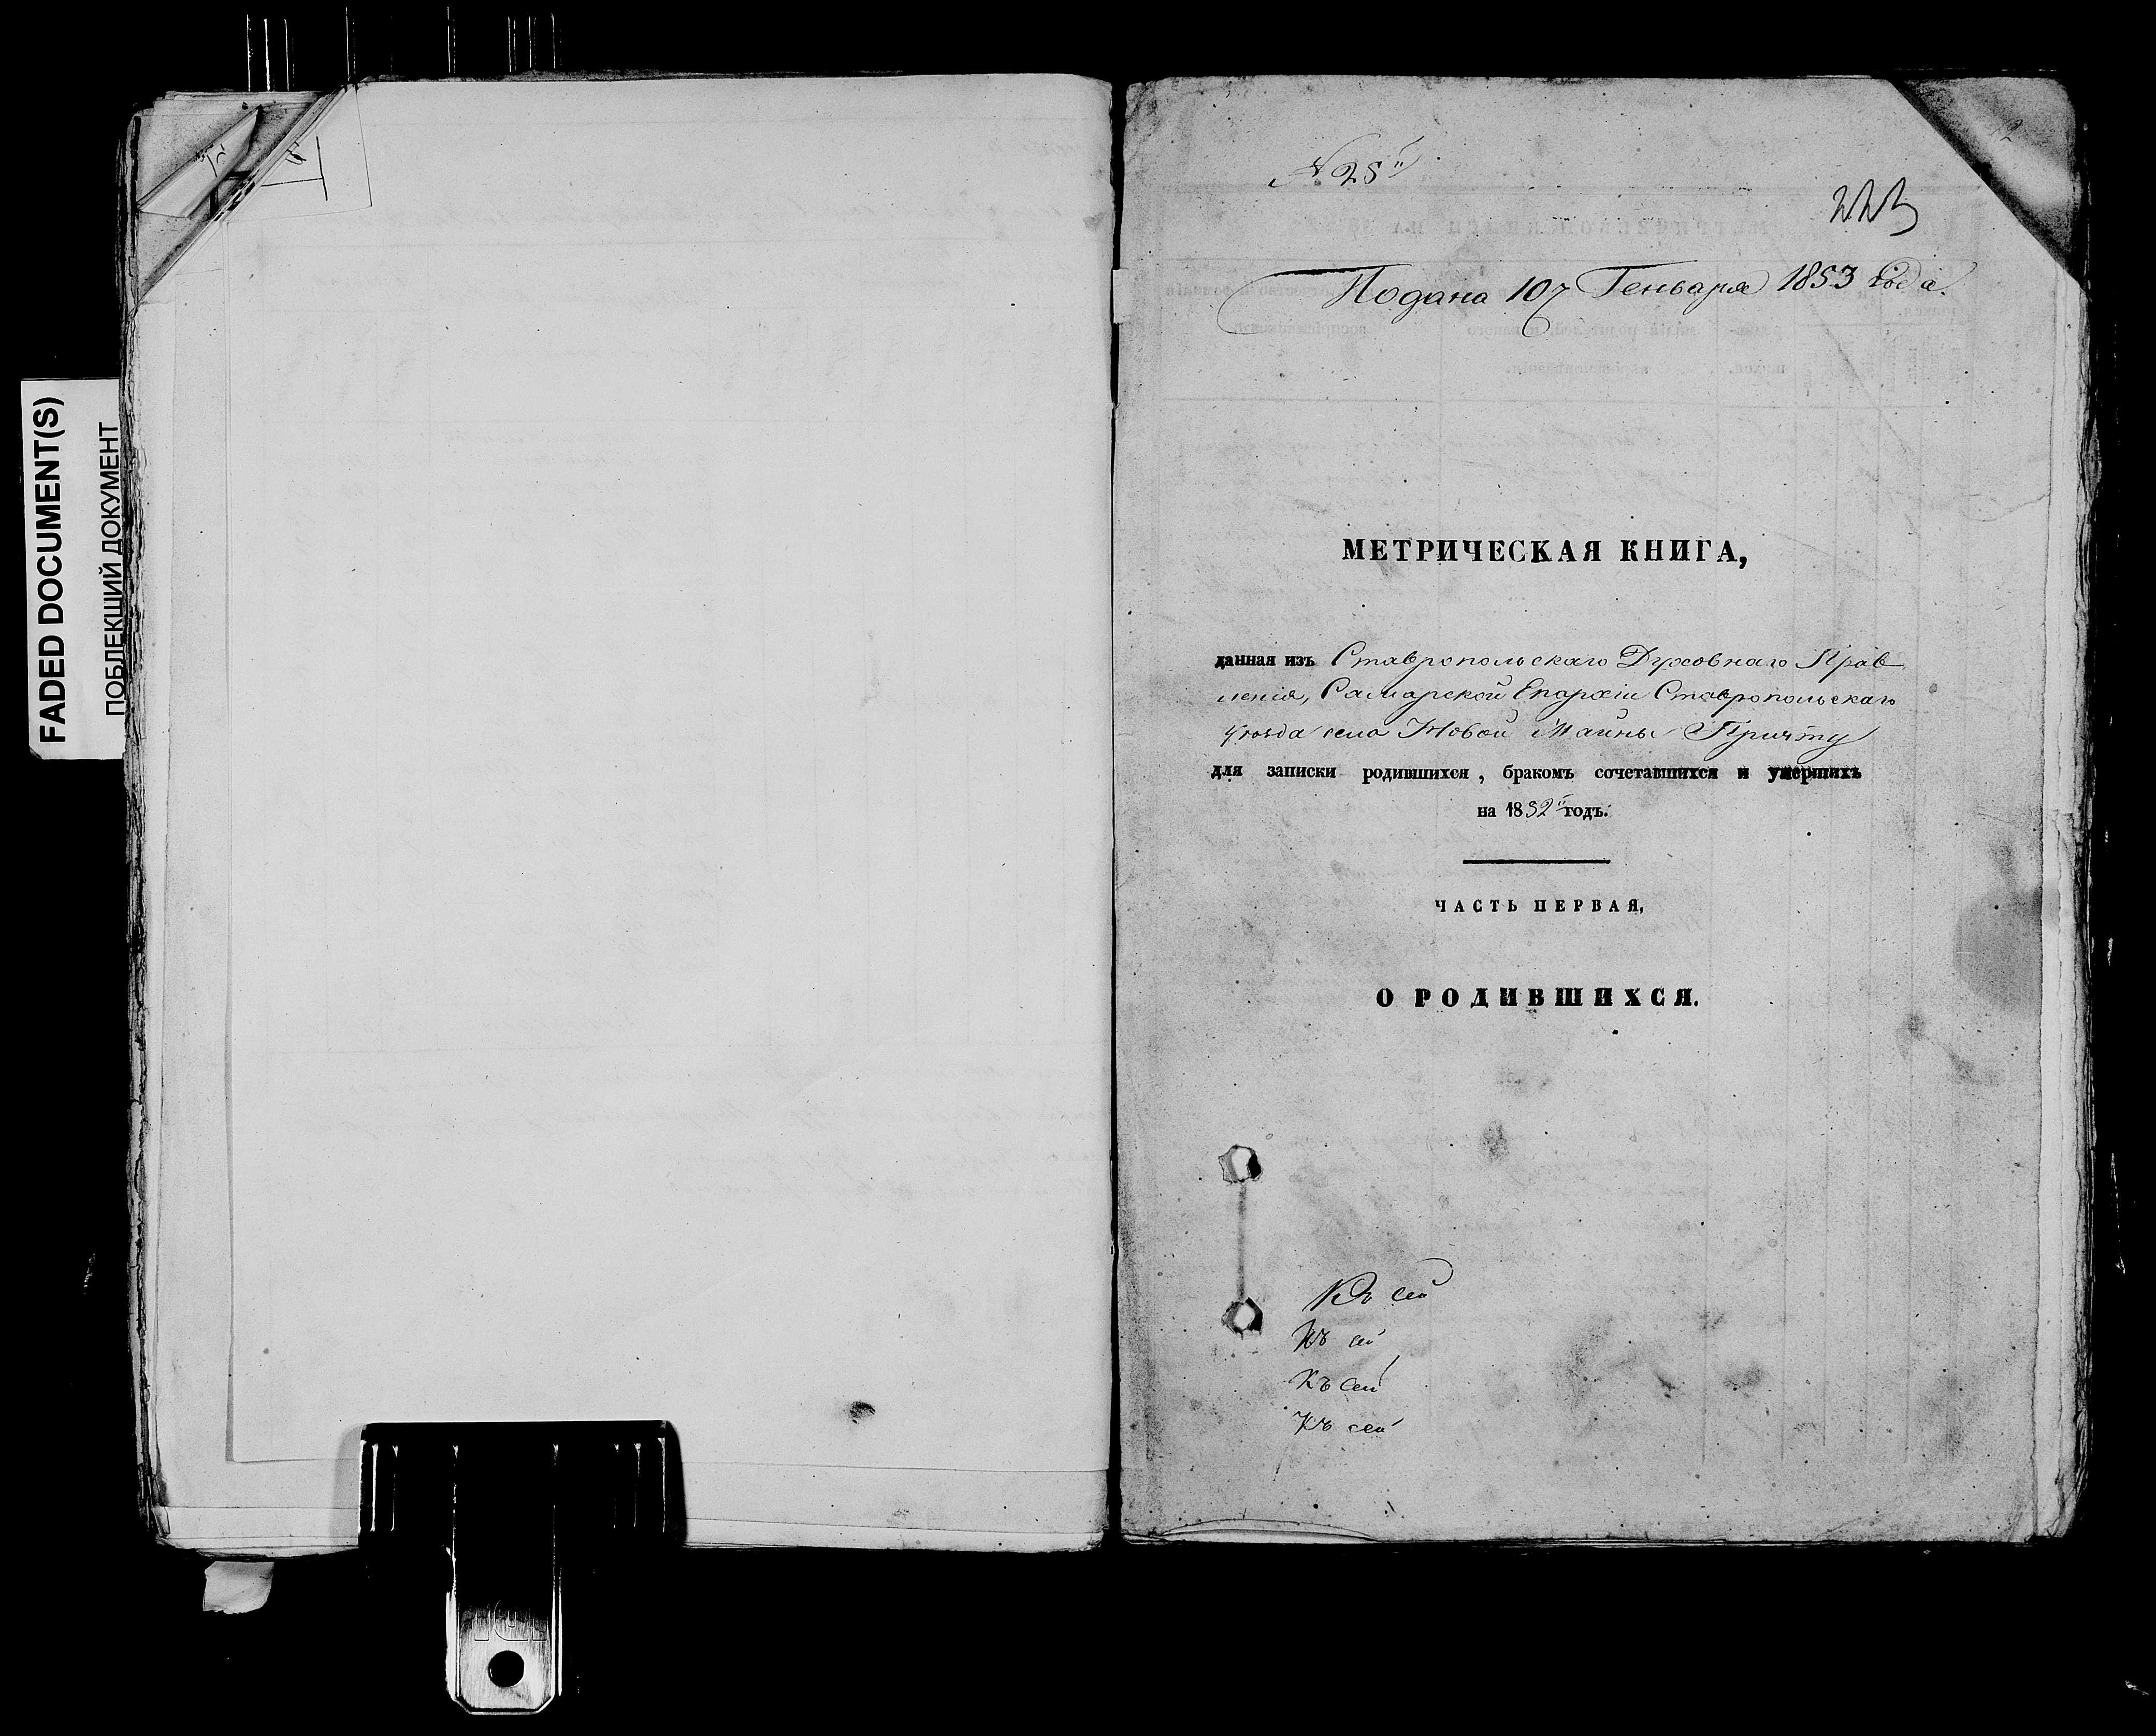 FADED DOCUMENT(S)
ПОБЛЕКШИЙ ДОКУМЕНТ
№ 28й
223
Подана 10 Генваря 1853 года.
МЕТРИЧЕСКАЯ КНИГА,
данная изъ Ставропольскаго Духовнаго Прав
ленія, Самарской Епархіи Ставропольскаго
уѣзда села Новой Майны Причту
для записки родившихся, бракомъ сочетавшихся и умершихъ
на 1852й годъ.
ЧАСТЬ ПЕРВАЯ,
О РОДИВШИХСЯ.
Къ сей
Къ сей
Къ сей
Къ сей